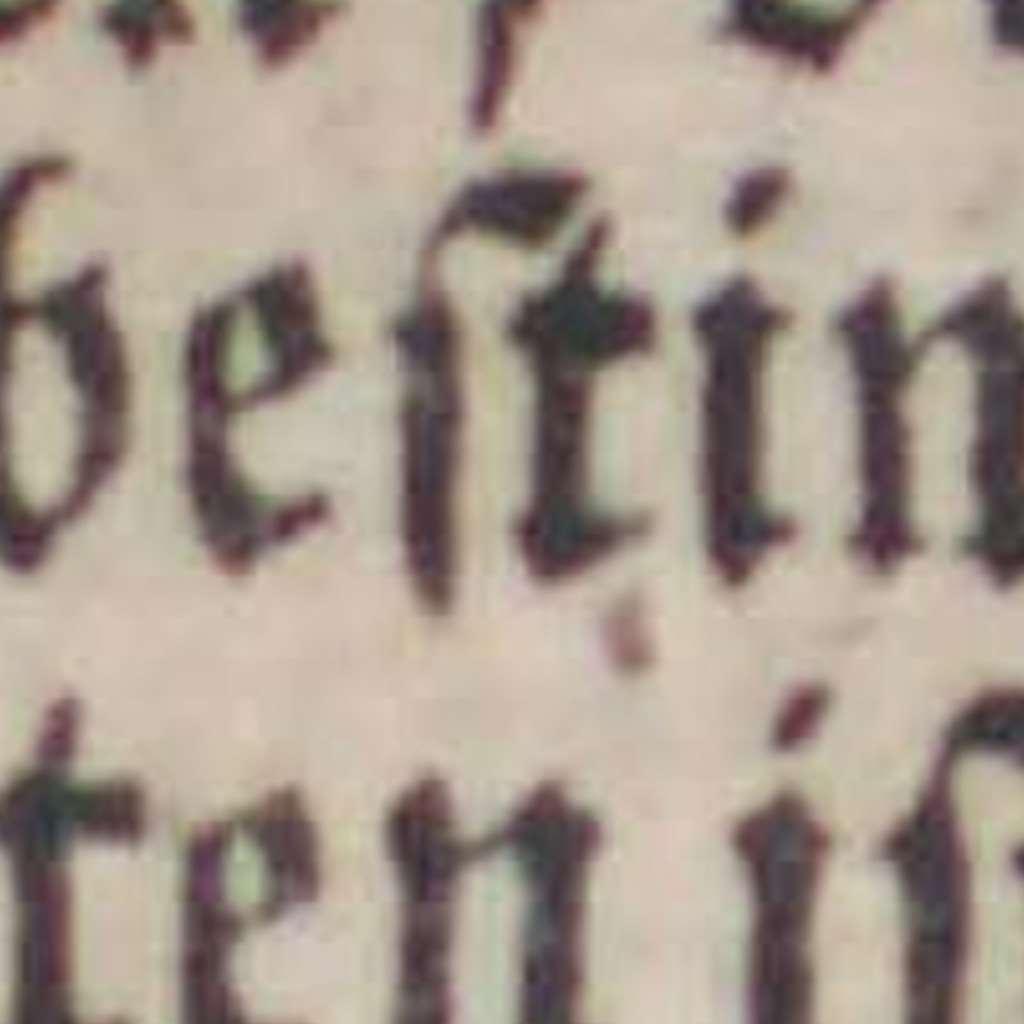 beſtin
ten iſ